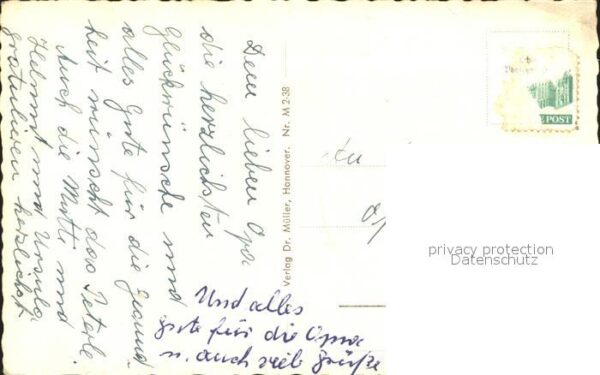 Dem lieben Opa
die herzlichsten
Glückwünsche und
alles Gute für die Gesund-
heit wünscht das Peterle.
Auch die Mutti und
Helmut und Ursula
gratulieren herzlichst.
Und alles
gute für die Oma
u. auch viele Grüße
Verlag Dr. Müller, Hannover. Nr. M 2-38
An
E POST
privacy protection
Datenschutz